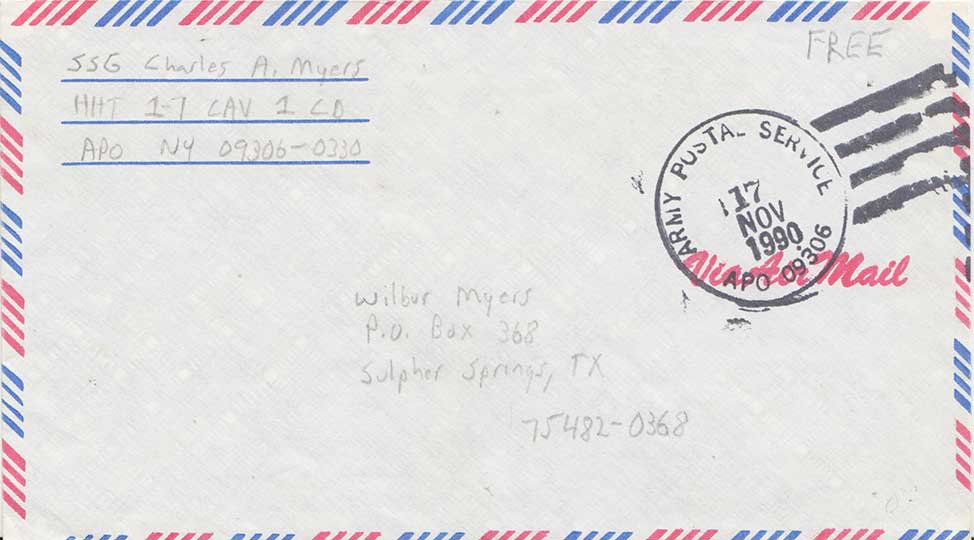 FREE
SSG Charles A. Myers
HHT 1-7 CAV 1 CD
APO NY 09306-0330
ARMY POSTAL SERVICE
17
NOV
1990
APO 09306
Via Air Mail
Wilbur Myers
P.O. Box 368
Sulpher Springs, TX
75482-0368